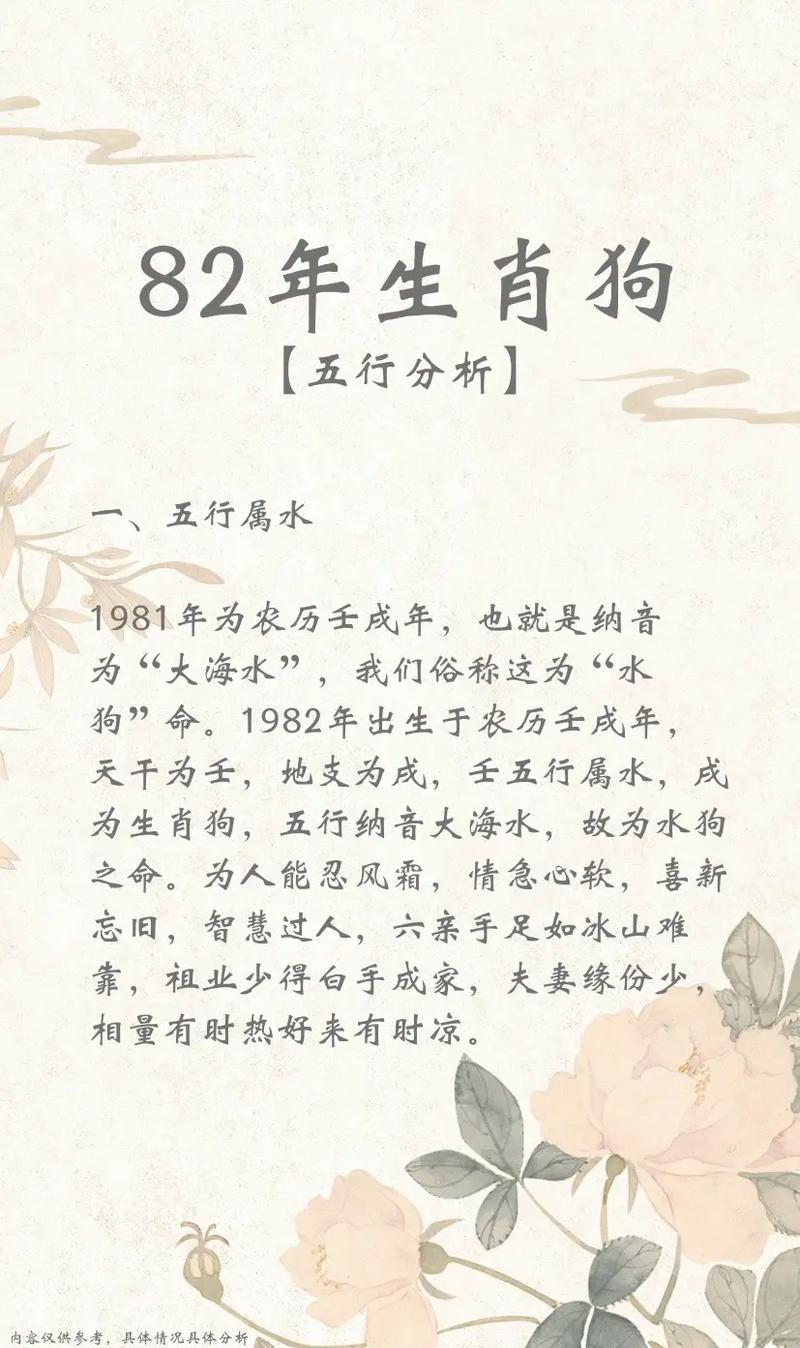 82年生肖狗
【五行分析】
一、五行属水
1981年为农历壬戌年，也就是纳音
为“大海水”，我们俗称这为“水
狗”命。1982年出生于农历壬戌年，
天干为壬，地支为戌，壬五行属水，戌
为生肖狗，五行纳音大海水，故为水狗
之命。为人能忍风霜，情急心软，喜新
忘旧，智慧过人，六亲手足如冰山难
靠，祖业少得白手成家，夫妻缘份少，
相量有时热好来有时凉。
内容仅供参考，具体情况具体分析